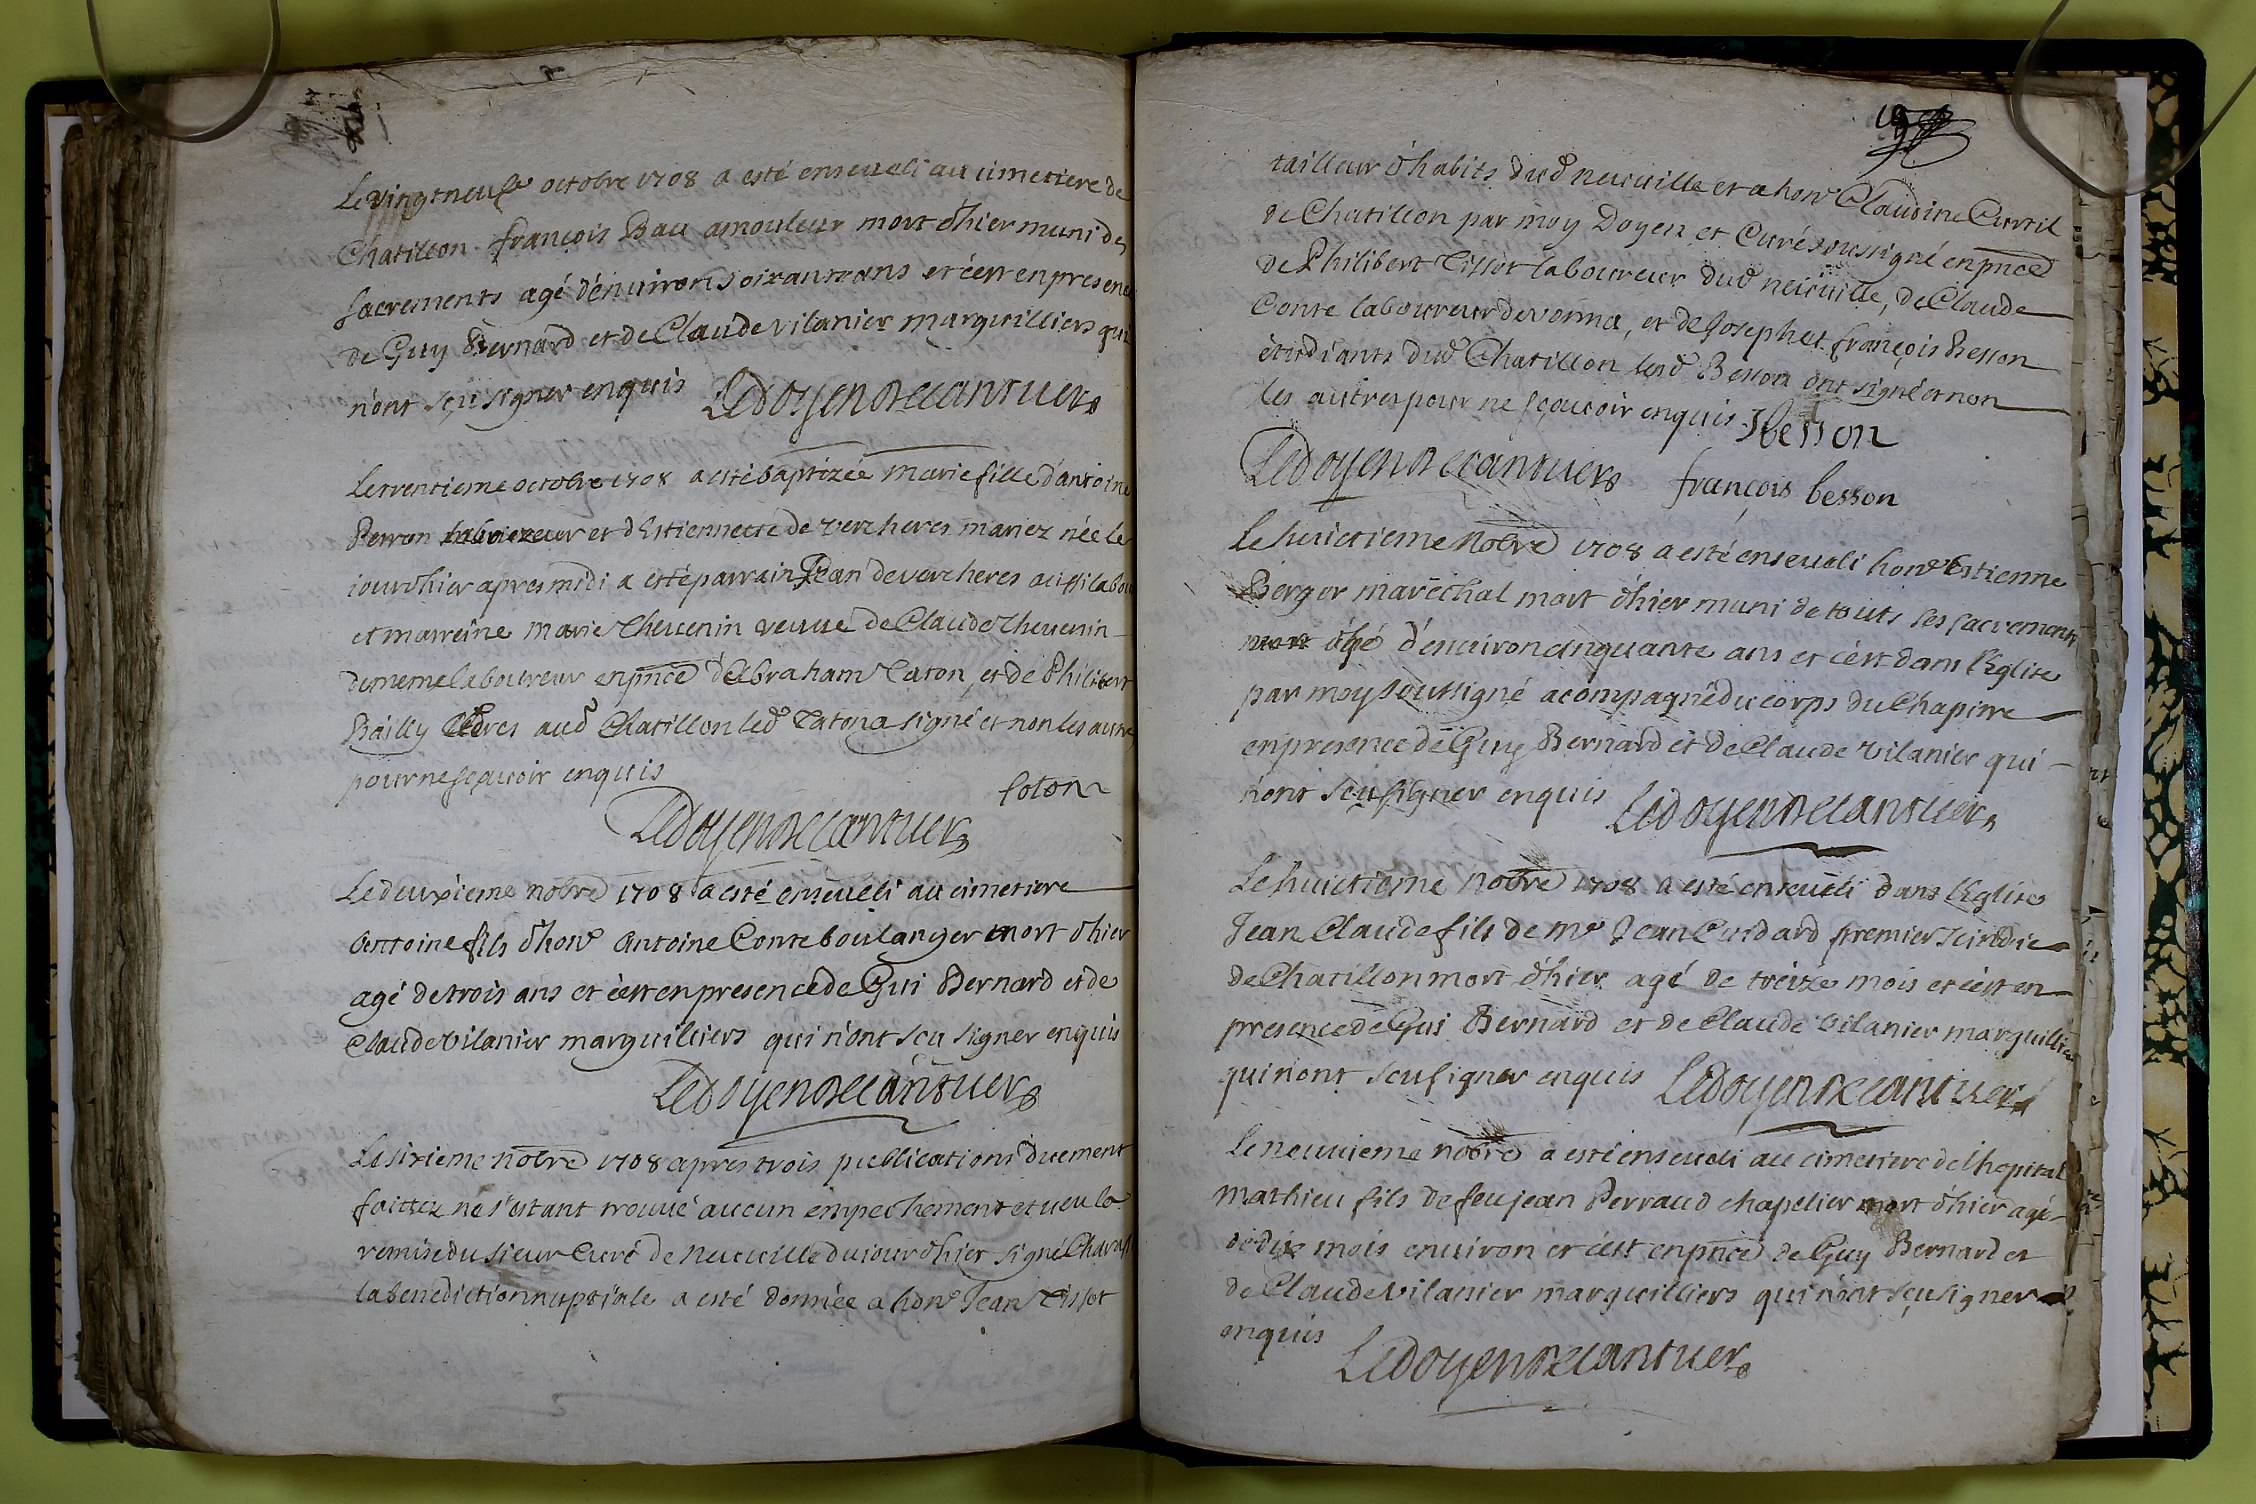 Le vingtneufe octobre 1708 a esté enseveli au cimetiere de
Chatillon françois Bau amouleur mort d'hier muni des
sacrements agé d'environ soixante ans et c'est en presence
de Guy Bernard et de Claude vilanier marguilliers qui
n'ont sçu signer enquis Le doyen Decantuers
Le trentieme octobre 1708 a esté baptizée marie fille d'antoine
Perron laboureur et d'Estiennette de vercheres mariez née le
jourd'hier apres midi a esté parrain Jean devercheres aussi labou
et marreine marie Thevenin veuve de Claude Thevenin
de meme laboureur en pnce d'Abraham Taton, et de Philibert
Bailly audt Chatillon ledt Taton a signé et non les autres
pour ne sçavoir enquis
toton
Le doyen Decantuers
Le deuxieme nobre 1708 a esté enseveli au cimetiere
Antoine fils d'hone Antoine Conte boulanger mort d'hier
agé de trois ans et c'est en presence de Gui Bernard et de
Claude vilanier marguilliers qui n'ont scu signer enquis
Le doyen Decantuers
Le sixieme nobre 1708 apres trois publications duement
faittez ne s'estant trouvé aucun empechement et veu la
remise du sieur Curé de neuville du jour d'hier signé
la benediction nuptiale a esté donnée a hone Jean Tissot
tailleur d'habits dudt neuville et a hone Claudine Curtil
de Chatillon par moy Doyen et Curé soussigné en pnce
de Philibert Tissot laboureur dudt neuville, de Claude
Conte laboureur de vonna, et de Joseph et françois Besson
étudiants dudt Chatillon lesdt Besson ont signé et non
les autres pour ne sçavoir enquis. Jbesson
Le doyen Decantuers françois besson
Le huictieme nobre 1708 a esté enseveli hone Estienne
Berger maréchal mort d'hier muni de touts ses sacrements
agé d'environ cinquante ans et c'est dans l'Eglise
par moy soussigné acompagné du corps du Chapitre
en presence de Guy Bernard et de Claude vilanier qui
n'ont sçu signer enquis Le doyen Decantuers
Le huictieme nobre 1708 a esté enseveli dans l'Eglise
Jean Claude fils de Me Jean Cuidard premier scindic
de Chatillon mort d'hier agé de treize mois et c'est en
presence de Gui Bernard et de Claude vilanier marguilliers
qui n'ont sçu signer enquis Le doyen Decantuers
Le neuvieme nobre a esté enseveli au cimetiere de l'hopital
mathieu fils de feu jean Perraud chapelier mort d'hier agé
de dix mois environ et c'est en pnce de Guy Bernard et
de Claude vilanier marguilliers qui n'ont sçu signer
enquis Le doyen Decantuers